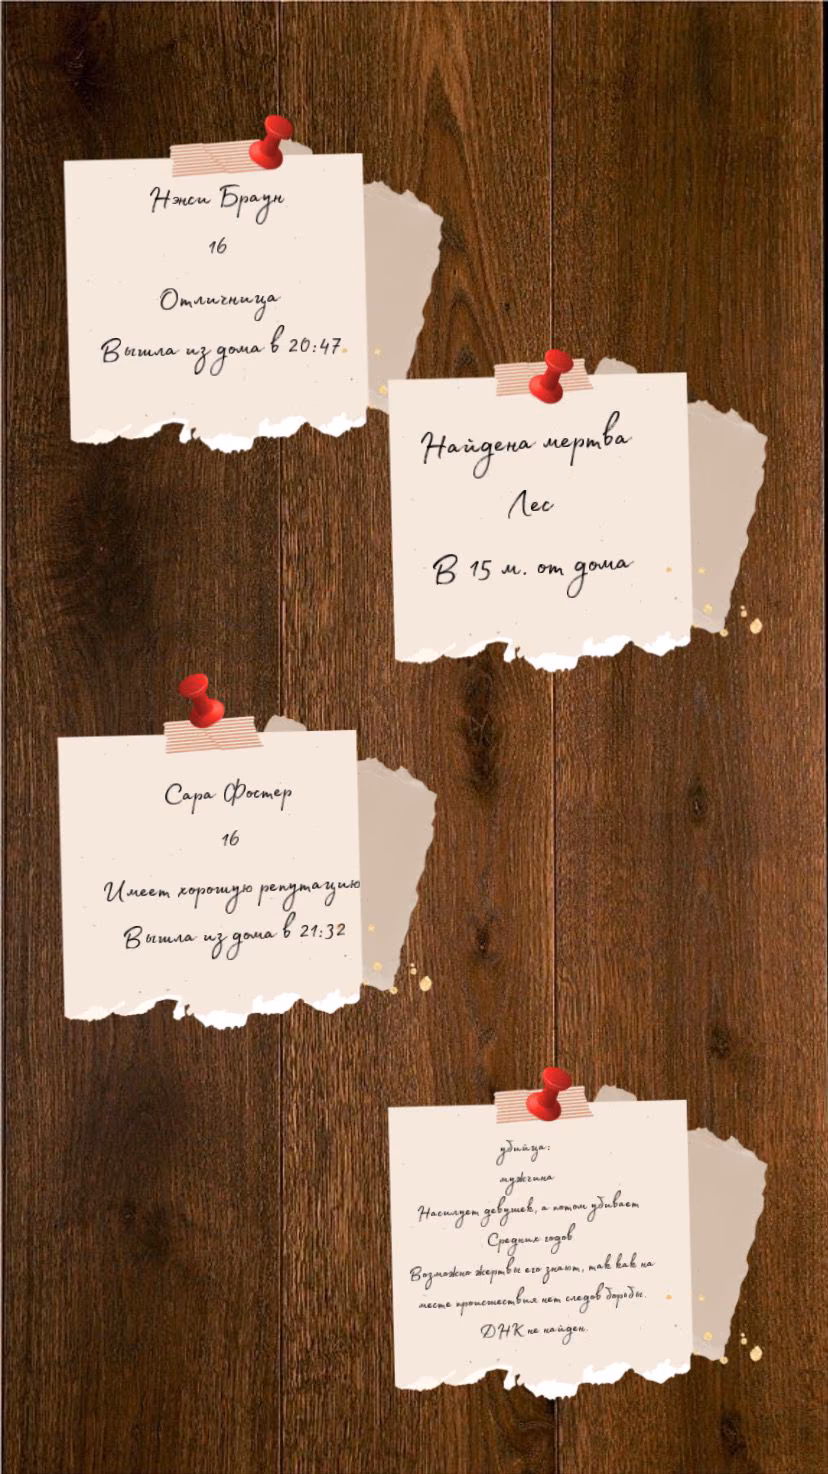 Нэнси Браун
16
Отличница
Вышла из дома в 20:47
Найдена мертва
Лес
В 15 м. от дома
Сара Фостер
16
Имеет хорошую репутацию
Вышла из дома в 21:32
убийца:
мужчина
Насилует девушек, а потом убивает
Средних годов
Возможно жертвы его знают, так как на
месте происшествия нет следов борьбы.
ДНК не найден.